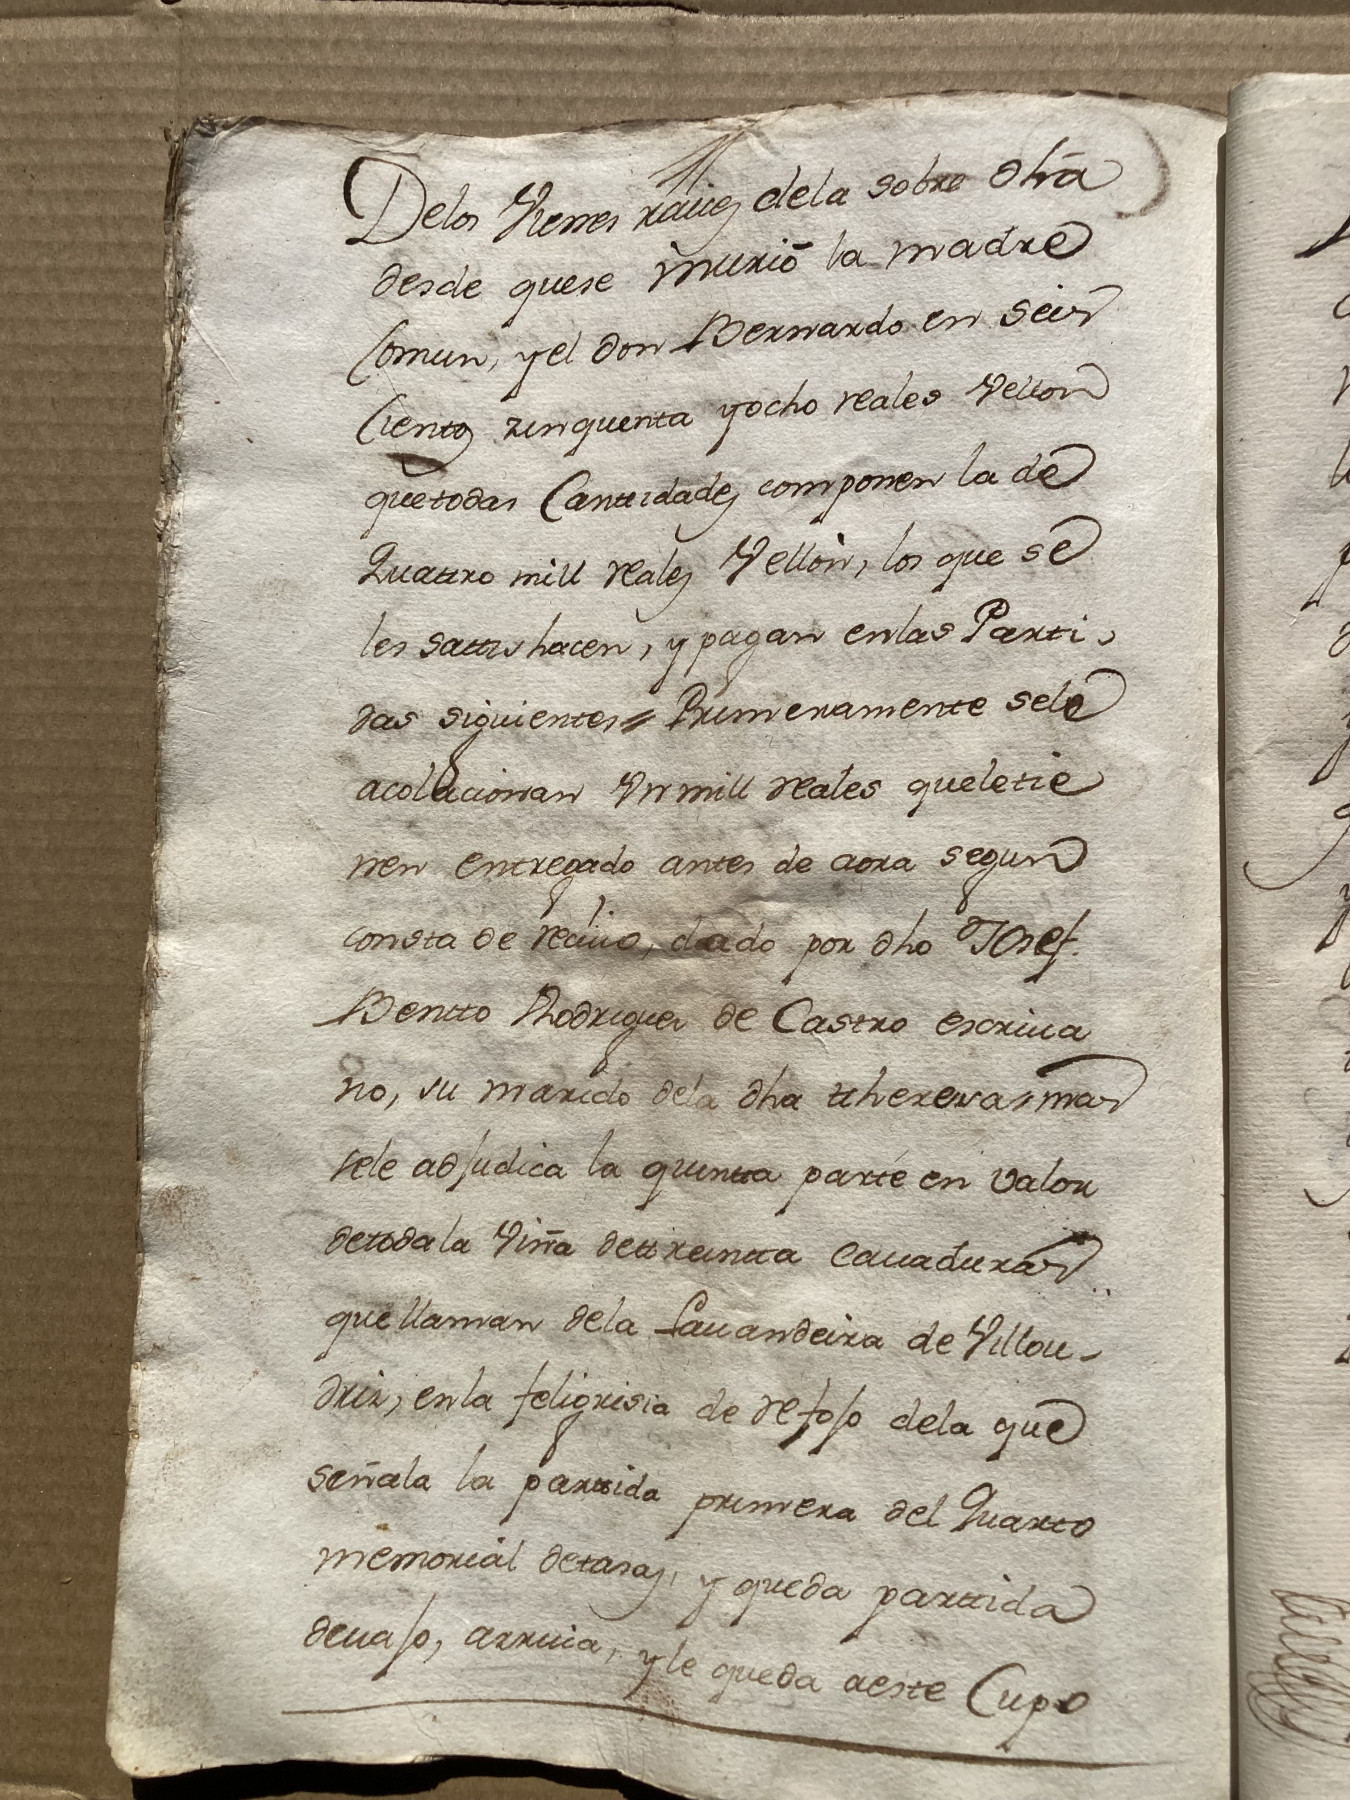 Delos Vienes raices dela sobre dhã
desde quese murió la madre
Comun, y el don Bernardo en seis
Cientos zinquenta yocho reales Vellon
quetodas Cantidades componen la de
Quatro mill reales Vellon, los que se
les sattishacen, y pagan enlas Parti-
das siguientes= Primeramente sele
acolacionan Vn mill reales queletie
nen entregado antes de aora segun
consta de reciuo, dado por dho Josef.
Bentto Rodriguez de Castro escriua
no, su marido dela dha ttheresa, mas
sele adjudica la quintta parte en valor
detoda la Viña dettreintta cauaduras
que llaman dela Lauandeira de Villou-
driz, enla feligrisia de refojo dela que
señala la parttida primera del Quarto
memorial detasas, y queda parttida
deuajo, arriua, y le queda aeste Cupo